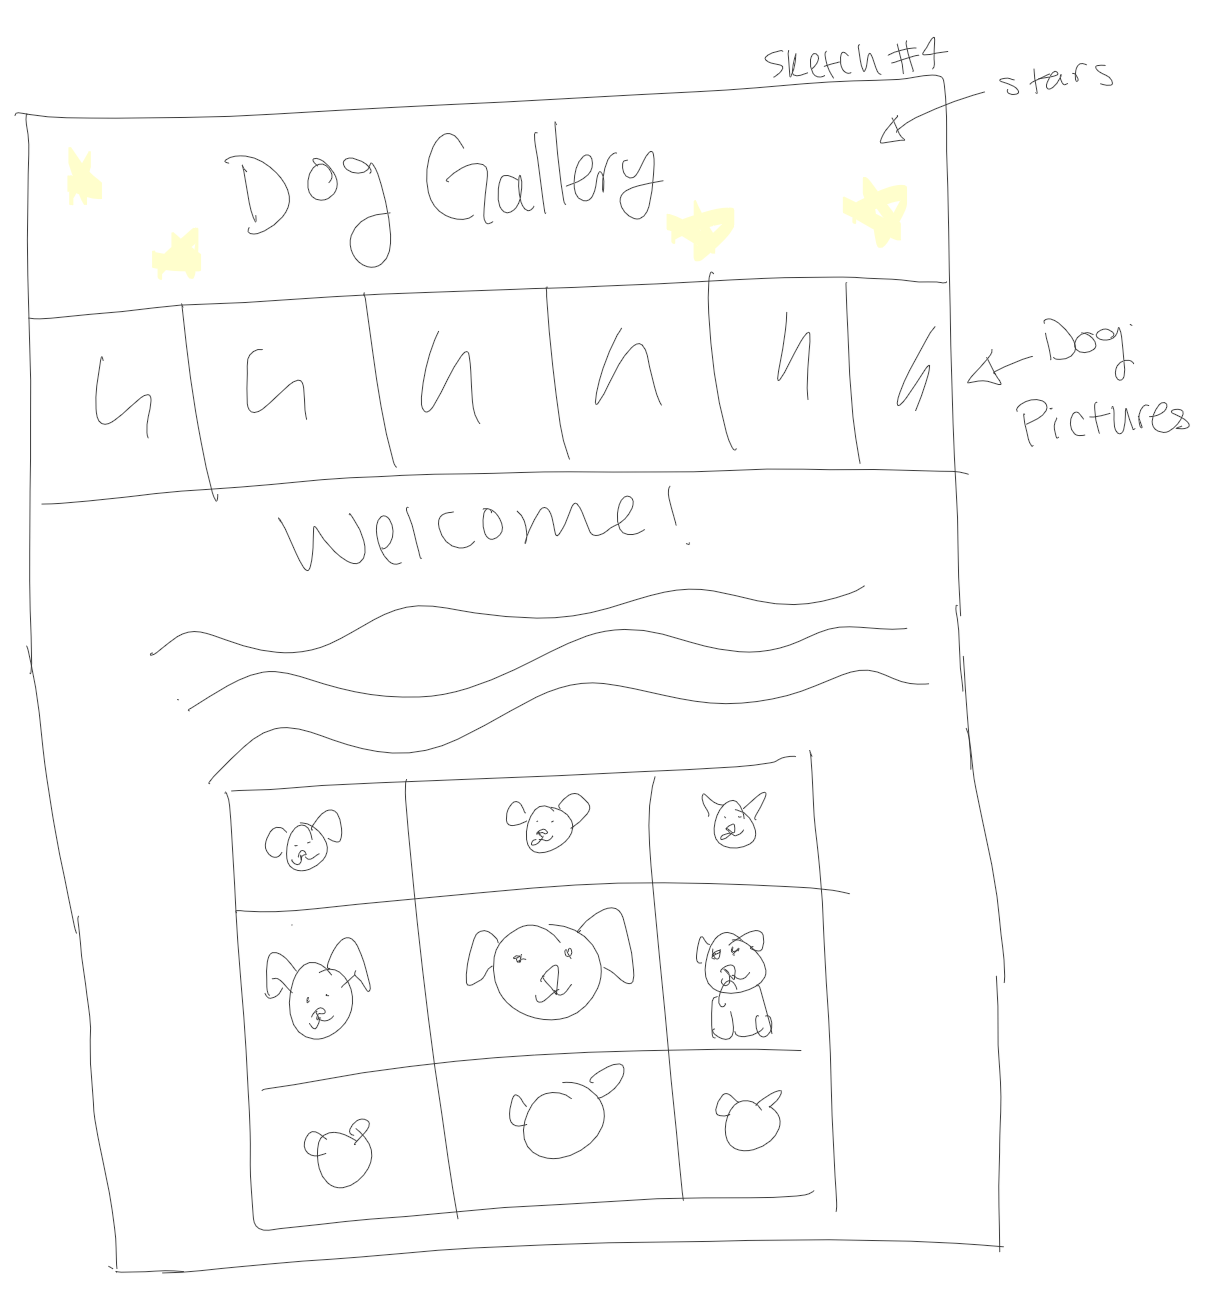 Sketch #4
stars
Dog Gallery
Dog
Pictures
Welcome!